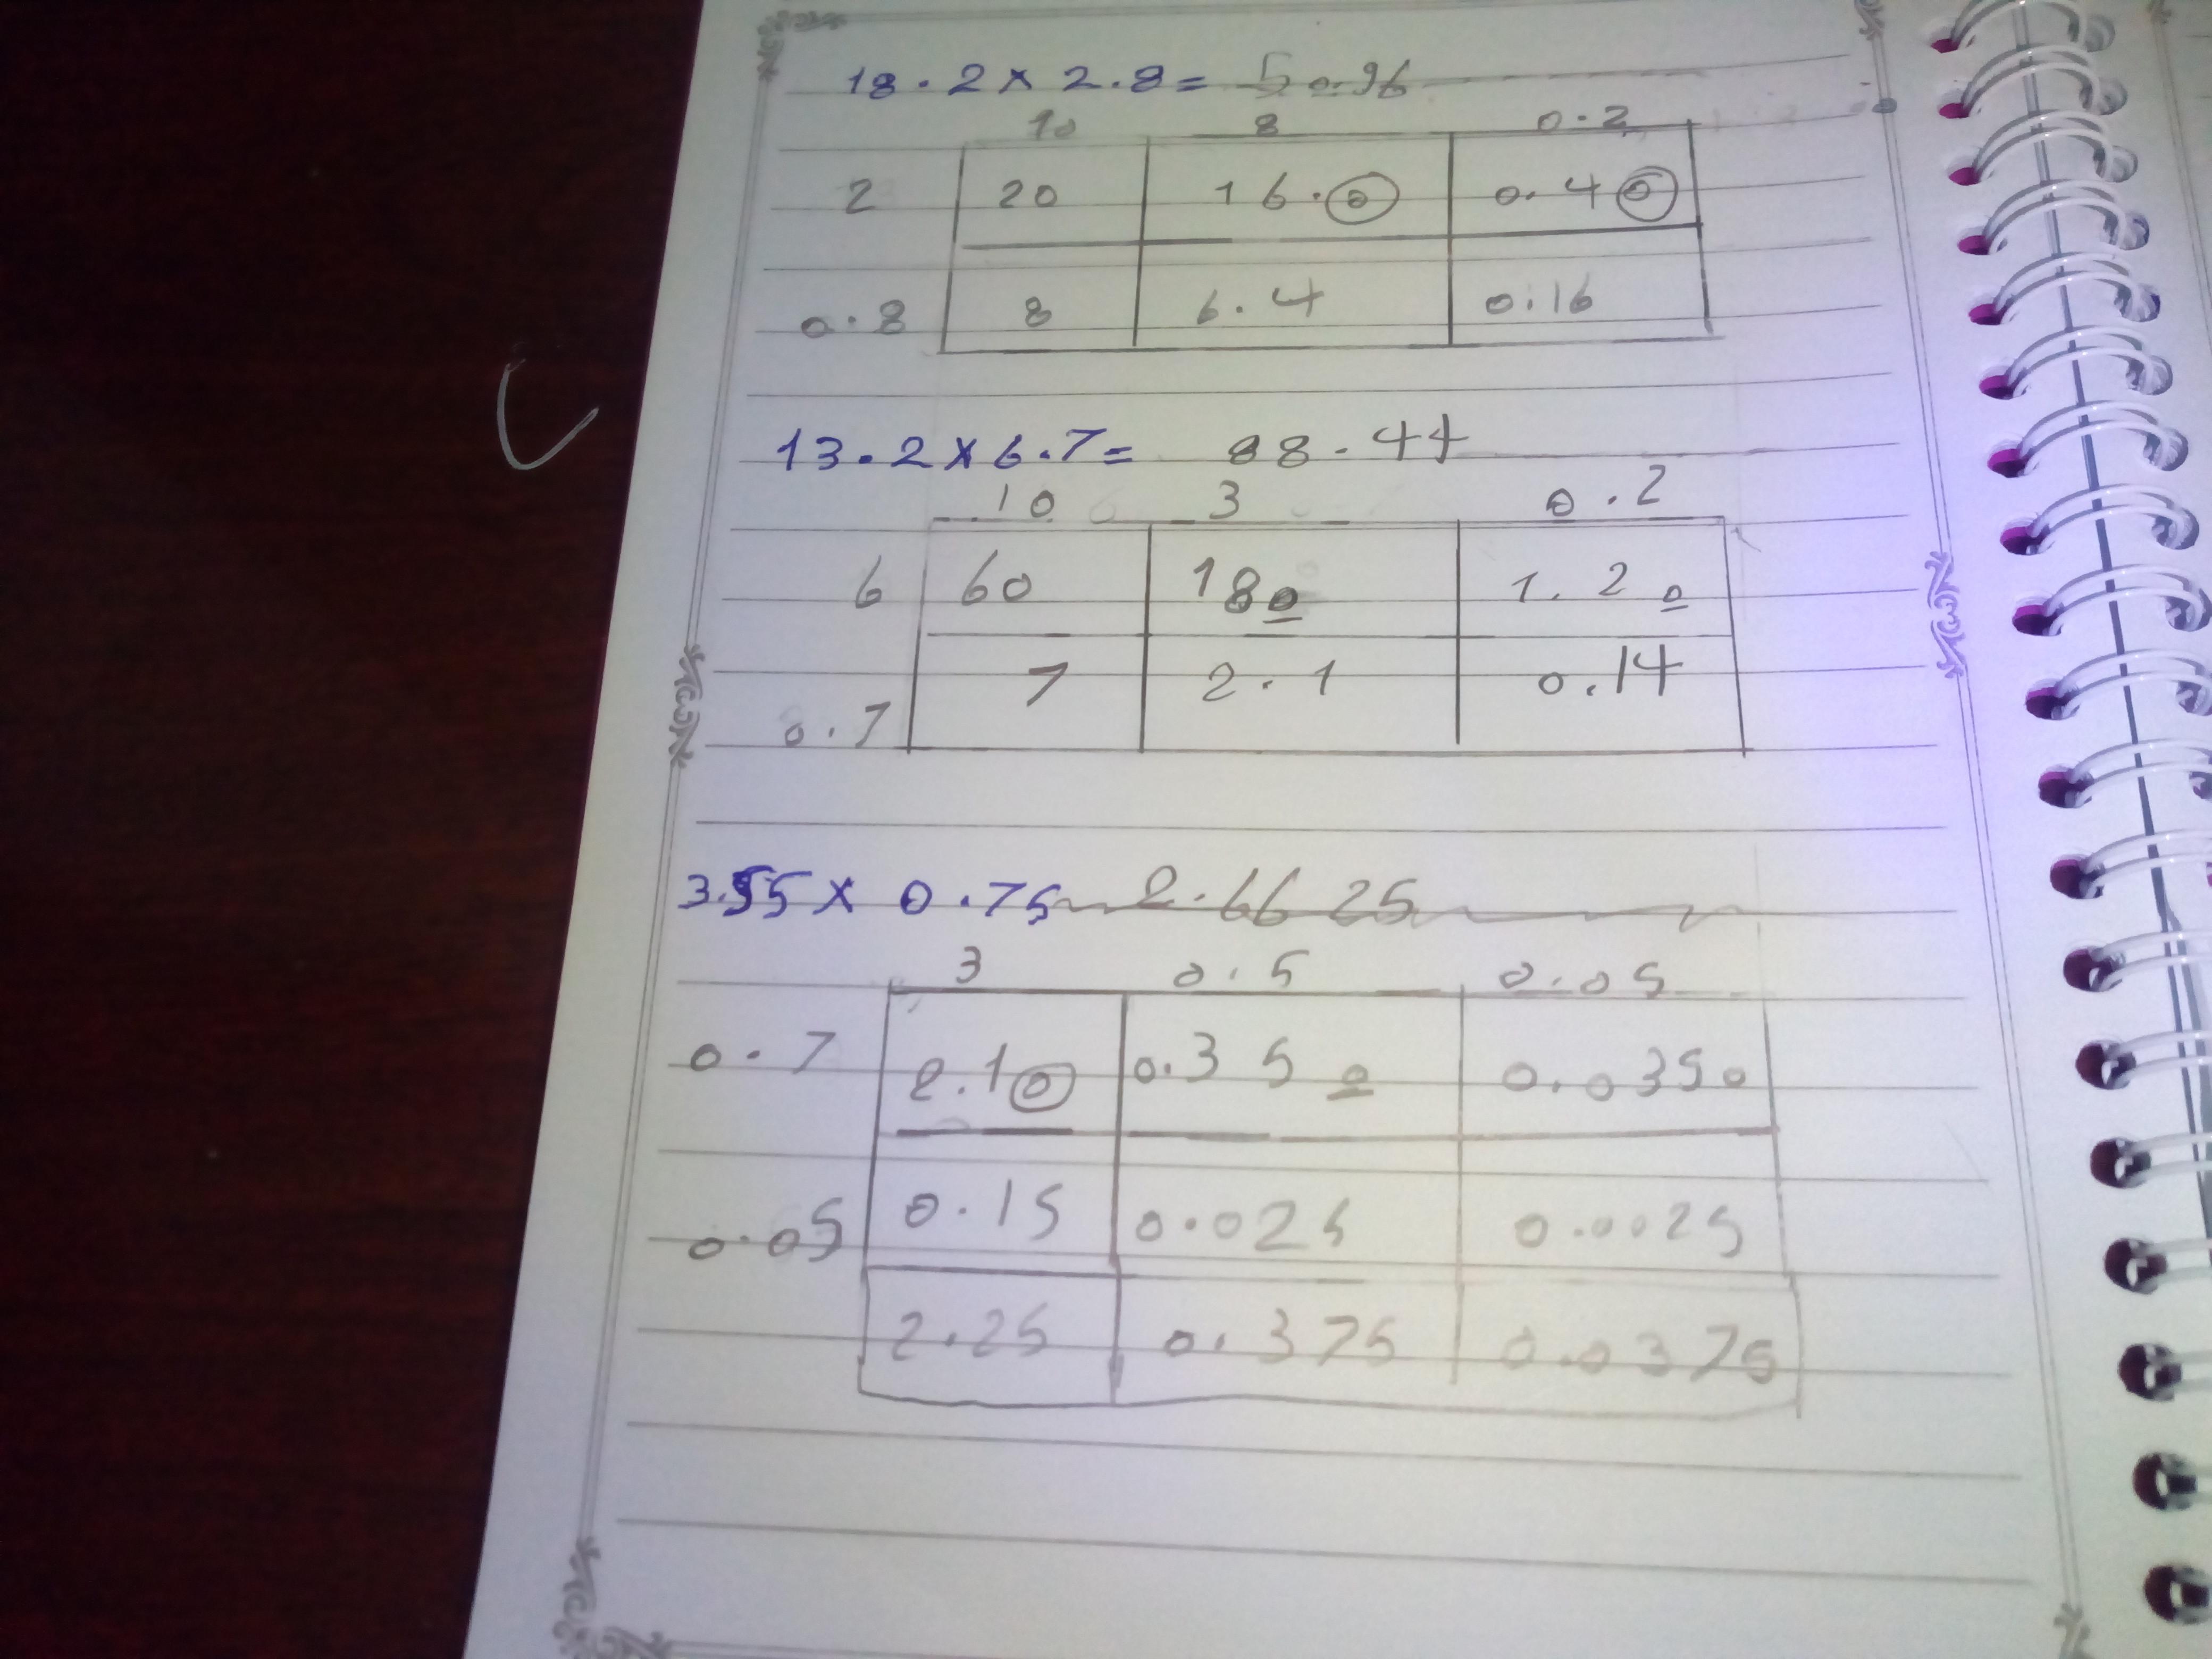 18.2 x 2.8 = 50.96
10 8 0.2
2 20 16.0 0.40
0.8 8 6.4 0.16
13.2 x 6.7 = 88.44
10 3 0.2
6 60 180 1.20
0.7 7 2.1 0.14
3.55 x 0.75 2.6625
3 0.5 0.05
0.7 2.10 0.350 0.0350
0.05 0.15 0.025 0.0025
2.25 0.375 0.0375